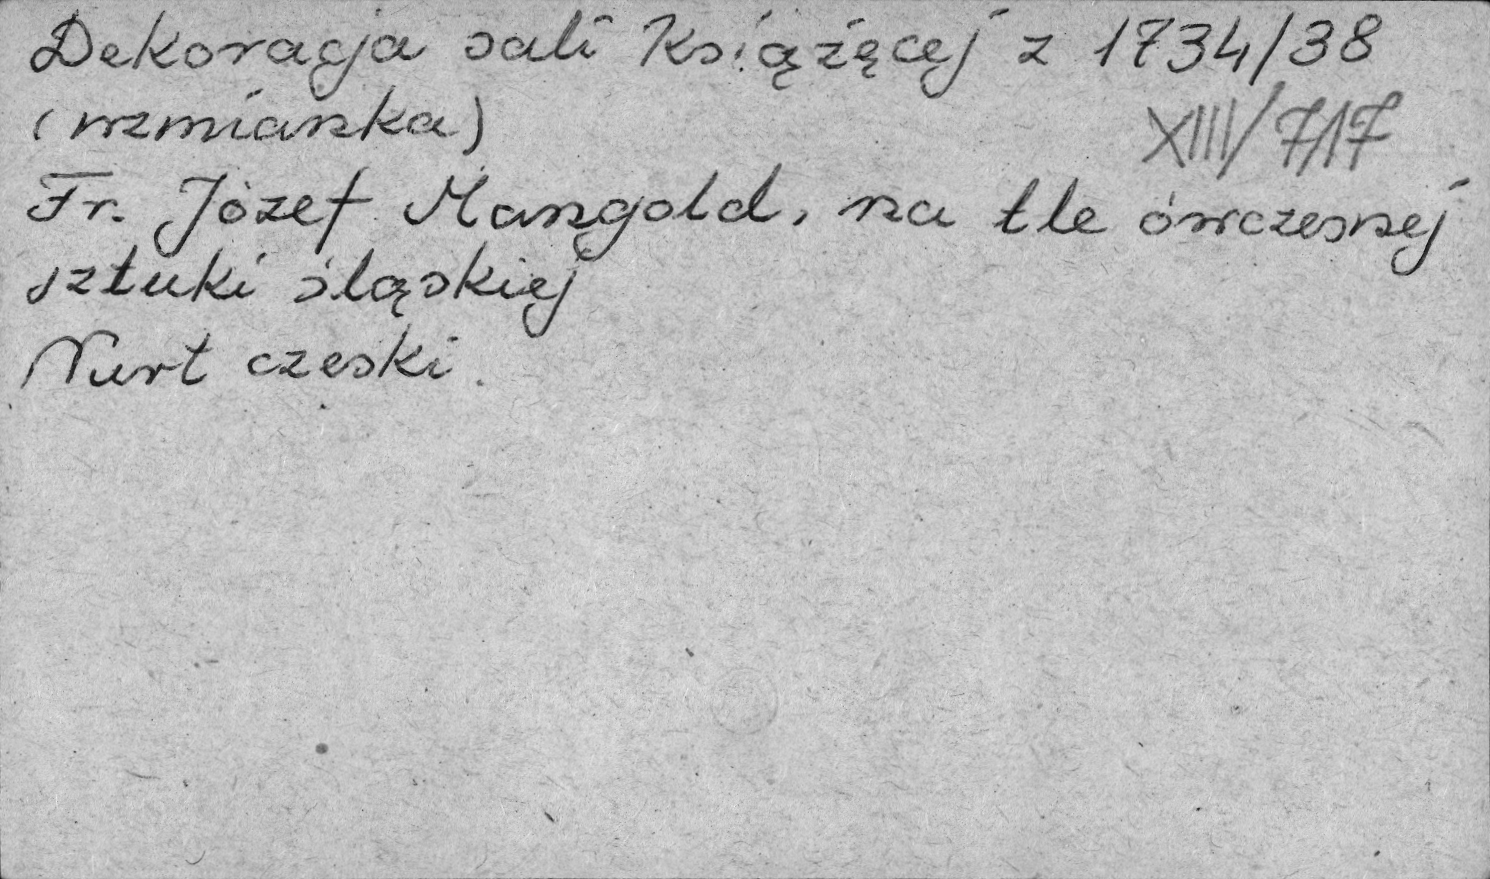 Dekoracja sali Książęcej z 1734/38
(wzmianka)
XIII/717
Fr. Józef Mangold, na tle ówczesnej
sztuki śląskiej
Nurt czeski.